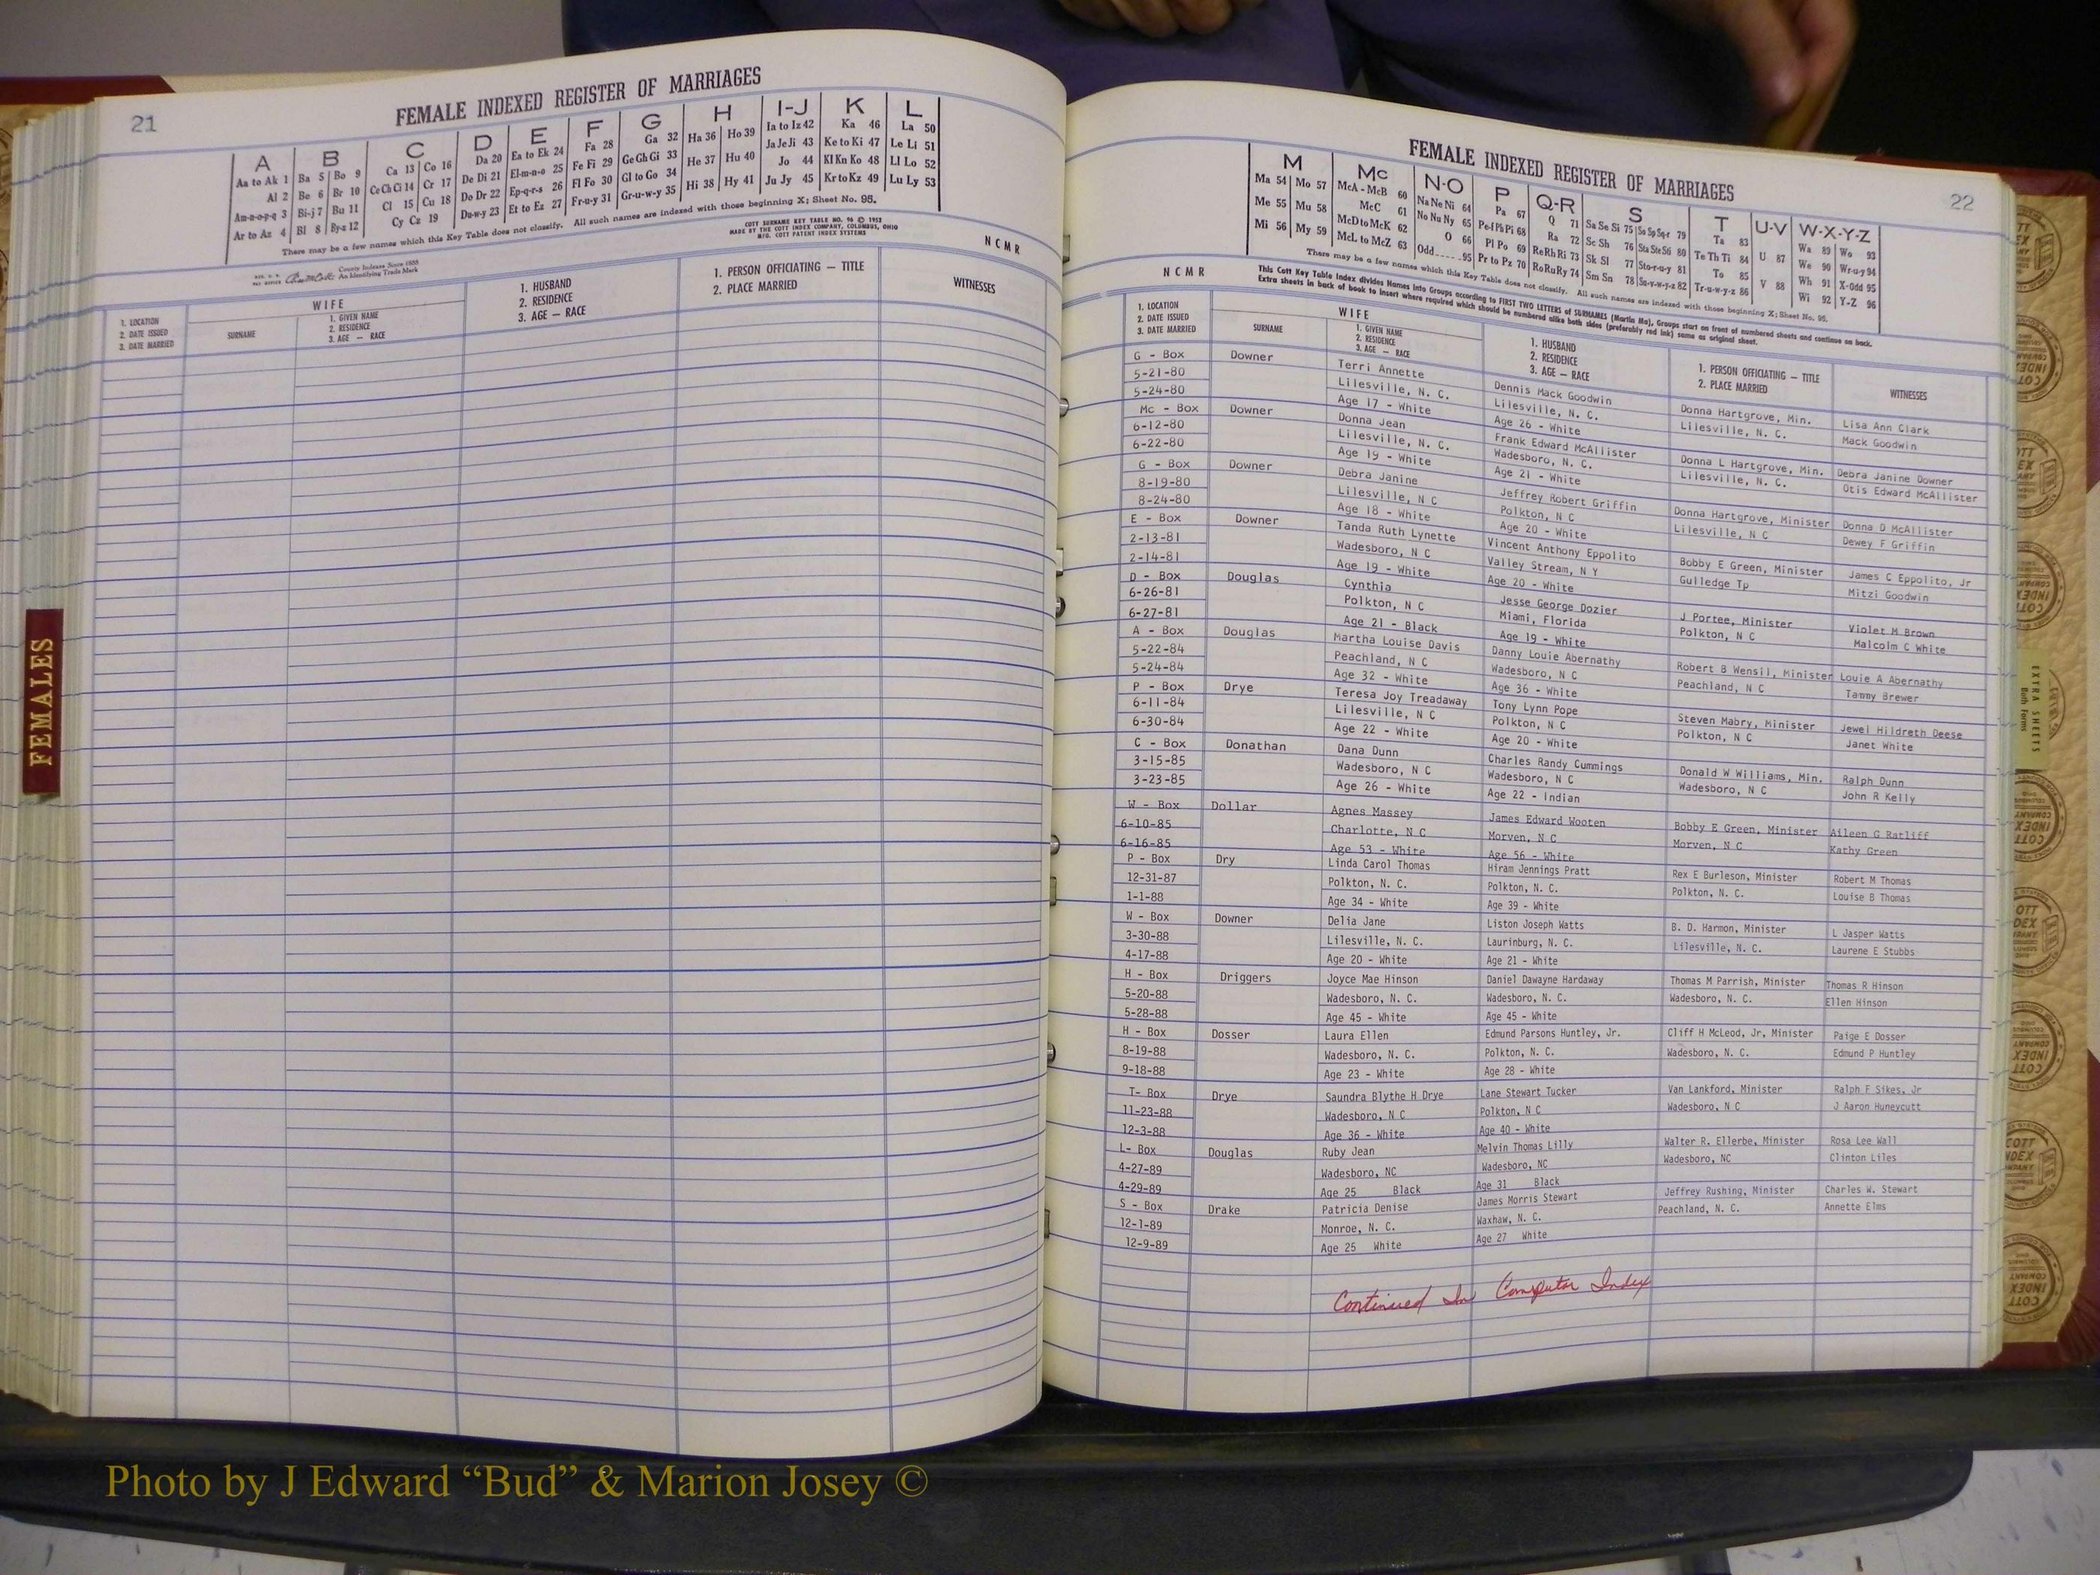 21
FEMALE INDEXED REGISTER OF MARRIAGES
A B C D E F G H I-J K L
Aa to Ak 1 Ba 5 Bo 9 Ca 13 Co 16 Da 20 Ea to Ek 24 Fa 28 Ga 32 Ha 36 Ho 39 Ia to Iz 42 Ka 46 La 50
Al 2 Be 6 Br 10 Ce Ch Ci 14 Cr 17 De Di 21 El-m-n-o 25 Fe Fi 29 Ge Gh Gi 33 He 37 Hu 40 Ja Je Ji 43 Ke to Ki 47 Le Li 51
Am-n-o-p-q 3 Bi-j 7 Bu 11 Cl 15 Cu 18 Do Dr 22 Ep-q-r-s 26 Fl Fo 30 Gl to Go 34 Hi 38 Hy 41 Jo 44 Kl Kn Ko 48 Ll Lo 52
Ar to Az 4 Bl 8 By-z 12 Cy Cz 19 Du-w-y 23 Et to Ez 27 Fr-u-y 31 Gr-u-w-y 35 Ju Jy 45 Kr to Kz 49 Lu Ly 53
There may be a few names which this Key Table does not classify. All such names are indexed with those beginning X; Sheet No. 95.
COTT SURNAME KEY TABLE NO. 96 © 1952
MADE BY THE COTT INDEX COMPANY, COLUMBUS, OHIO
MFG. COTT PATENT INDEX SYSTEMS
County Indexes Since 1888
An Identifying Trade Mark
N C M R
WIFE
1. LOCATION
2. DATE ISSUED
3. DATE MARRIED
SURNAME
1. GIVEN NAME
2. RESIDENCE
3. AGE — RACE
1. HUSBAND
2. RESIDENCE
3. AGE — RACE
1. PERSON OFFICIATING — TITLE
2. PLACE MARRIED
WITNESSES
FEMALES
FEMALE INDEXED REGISTER OF MARRIAGES
22
M Mc N-O P Q-R S T U-V W-X-Y-Z
Ma 54 Mo 57 McA - McB 60 Na Ne Ni 64 Pa 67 Q 71 Sa Se Si 75 So Sp Sq-r 79 Ta 83 U 87 Wa 89 Wo 93
Me 55 Mu 58 McC 61 No Nu Ny 65 Pe-f Ph Pi 68 Ra 72 Sc Sh 76 Sta Ste Sti 80 Te Th Ti 84 We 90 Wr-u-y 94
Mi 56 My 59 McD to McK 62 O 66 Pl Po 69 Re Rh Ri 73 Sk Sl 77 Sto-r-u-y 81 To 85 V 88 Wh 91 X-Odd 95
McL to McZ 63 Odd 95 Pr to Pz 70 Ro Ru Ry 74 Sm Sn 78 Su-v-w-y-z 82 Tr-u-w-y-z 86 Wi 92 Y-Z 96
There may be a few names which this Key Table does not classify. All such names are indexed with those beginning X; Sheet No. 95.
N C M R
This Cott Key Table Index divides Names into Groups according to FIRST TWO LETTERS of SURNAMES (Martin Ma), Groups start on front of numbered sheets and continue on back.
Extra sheets in back of book to insert where required which should be numbered alike both sides (preferably red ink) same as original sheet.
WIFE
1. LOCATION
2. DATE ISSUED
3. DATE MARRIED
SURNAME
1. GIVEN NAME
2. RESIDENCE
3. AGE — RACE
1. HUSBAND
2. RESIDENCE
3. AGE — RACE
1. PERSON OFFICIATING — TITLE
2. PLACE MARRIED
WITNESSES
G - Box Downer Terri Annette Dennis Mack Goodwin Donna Hartgrove, Min. Lisa Ann Clark
5-21-80 Lilesville, N. C. Lilesville, N. C. Lilesville, N. C. Mack Goodwin
5-24-80 Age 17 - White Age 26 - White
Mc - Box Downer Donna Jean Frank Edward McAllister Donna L Hartgrove, Min. Debra Janine Downer
6-12-80 Lilesville, N. C. Wadesboro, N. C. Lilesville, N. C. Otis Edward McAllister
6-22-80 Age 19 - White Age 21 - White
G - Box Downer Debra Janine Jeffrey Robert Griffin Donna Hartgrove, Minister Donna D McAllister
8-19-80 Lilesville, N C Polkton, N C Lilesville, N C Dewey F Griffin
8-24-80 Age 18 - White Age 20 - White
E - Box Downer Tanda Ruth Lynette Vincent Anthony Eppolito Bobby E Green, Minister James C Eppolito, Jr
2-13-81 Wadesboro, N C Valley Stream, N Y Gulledge Tp Mitzi Goodwin
2-14-81 Age 19 - White Age 20 - White
D - Box Douglas Cynthia Jesse George Dozier J Portee, Minister Violet M Brown
6-26-81 Polkton, N C Miami, Florida Polkton, N C Malcolm C White
6-27-81 Age 21 - Black Age 19 - White
A - Box Douglas Martha Louise Davis Danny Louie Abernathy Robert B Wensil, Minister Louie A Abernathy
5-22-84 Peachland, N C Wadesboro, N C Peachland, N C Tammy Brewer
5-24-84 Age 32 - White Age 36 - White
P - Box Drye Teresa Joy Treadaway Tony Lynn Pope Steven Mabry, Minister Jewel Hildreth Deese
6-11-84 Lilesville, N C Polkton, N C Polkton, N C Janet White
6-30-84 Age 22 - White Age 20 - White
C - Box Donathan Dana Dunn Charles Randy Cummings Donald W Williams, Min. Ralph Dunn
3-15-85 Wadesboro, N C Wadesboro, N C Wadesboro, N C John R Kelly
3-23-85 Age 26 - White Age 22 - Indian
W - Box Dollar Agnes Massey James Edward Wooten Bobby E Green, Minister Aileen G Ratliff
6-10-85 Charlotte, N C Morven, N C Morven, N C Kathy Green
6-16-85 Age 53 - White Age 56 - White
P - Box Dry Linda Carol Thomas Hiram Jennings Pratt Rex E Burleson, Minister Robert M Thomas
12-31-87 Polkton, N. C. Polkton, N. C. Polkton, N. C. Louise B Thomas
1-1-88 Age 34 - White Age 39 - White
W - Box Downer Delia Jane Liston Joseph Watts B. D. Harmon, Minister L Jasper Watts
3-30-88 Lilesville, N. C. Laurinburg, N. C. Lilesville, N. C. Laurene E Stubbs
4-17-88 Age 20 - White Age 21 - White
H - Box Driggers Joyce Mae Hinson Daniel Dawayne Hardaway Thomas M Parrish, Minister Thomas R Hinson
5-20-88 Wadesboro, N. C. Wadesboro, N. C. Wadesboro, N. C. Ellen Hinson
5-28-88 Age 45 - White Age 45 - White
H - Box Dosser Laura Ellen Edmund Parsons Huntley, Jr. Cliff H McLeod, Jr, Minister Paige E Dosser
8-19-88 Wadesboro, N. C. Polkton, N. C. Wadesboro, N. C. Edmund P Huntley
9-18-88 Age 23 - White Age 28 - White
T- Box Drye Saundra Blythe H Drye Lane Stewart Tucker Van Lankford, Minister Ralph F Sikes, Jr
11-23-88 Wadesboro, N C Polkton, N C Wadesboro, N C J Aaron Huneycutt
12-3-88 Age 36 - White Age 40 - White
L- Box Douglas Ruby Jean Melvin Thomas Lilly Walter R. Ellerbe, Minister Rosa Lee Wall
4-27-89 Wadesboro, NC Wadesboro, NC Wadesboro, NC Clinton Liles
4-29-89 Age 25 Black Age 31 Black
S - Box Drake Patricia Denise James Morris Stewart Jeffrey Rushing, Minister Charles W. Stewart
12-1-89 Monroe, N. C. Waxhaw, N. C. Peachland, N. C. Annette Elms
12-9-89 Age 25 White Age 27 White
Continued In Computer Index
EXTRA SHEETS
Both Forms
Photo by J Edward “Bud” & Marion Josey ©